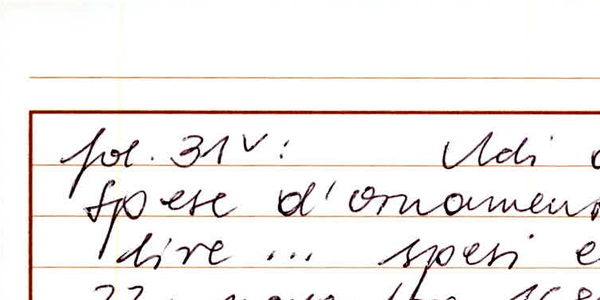 fol. 31v: Udi
spese d'ornament
dire ... spesi e